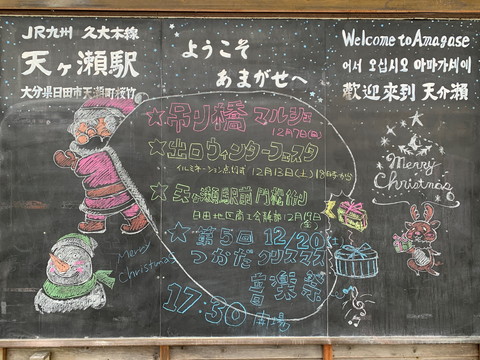 JR九州 久大本線
天ヶ瀬駅
大分県日田市天瀬町桜竹
ようこそ
あまがせへ
Welcome to Amagase
어서 오십시오 아마가세에
歡迎來到 天介瀬
★吊り橋マルシェ
12月7日(日)
★出口ウィンターフェスタ
イルミネーション点灯式 12月13日(土)
★天ヶ瀬駅前門松作り
日田地区商工会議部 12月
★第5回 12/20
つかだクリスマス
音楽祭
17:30 開場
Merry Christmas
Merry
Christmas